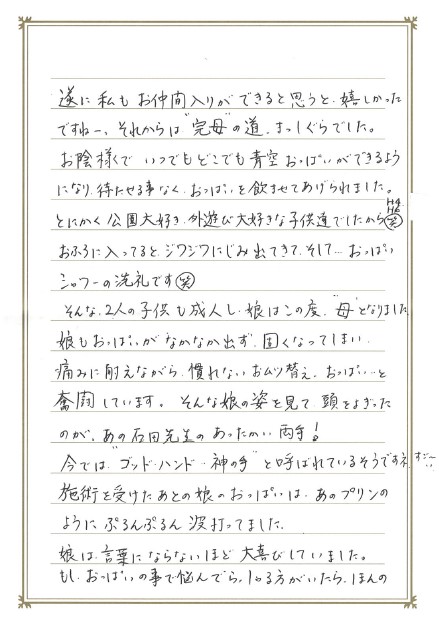 遂に私もお仲間入りができると思うと、嬉しかった
ですねー、それからは“完母”の道、まっしぐらでした。
お陰様で いつでもどこでも青空おっぱいができるよう
になり、待たせる事なく、おっぱいを飲ませてあげられました。
とにかく公園大好き、外遊び大好きな子供達でしたから(笑)
おふろに入ってると、ジワジワにじみ出てきて、そして…おっぱい
シャワーの洗礼です(笑)
そんな、2人の子供も成人し、娘はこの度、“母”となりました
娘もおっぱいがなかなか出ず、固くなってしまい、
痛みに耐えながら、慣れないおムツ替え、おっぱい…と
奮闘しています。そんな娘の姿を見て、頭をよぎった
のが、あの石田先生のあったかい両手!
今では“ゴッド・ハンド・神の手”と呼ばれているそうですネ、すご〜い!!
施術を受けたあとの娘のおっぱいは、あのプリンの
ように ぷるんぷるん 波打ってました。
娘は、言葉にならないほど 大喜びしていました。
もし、おっぱいの事で悩んでらっしゃる方がいたら、ほんの